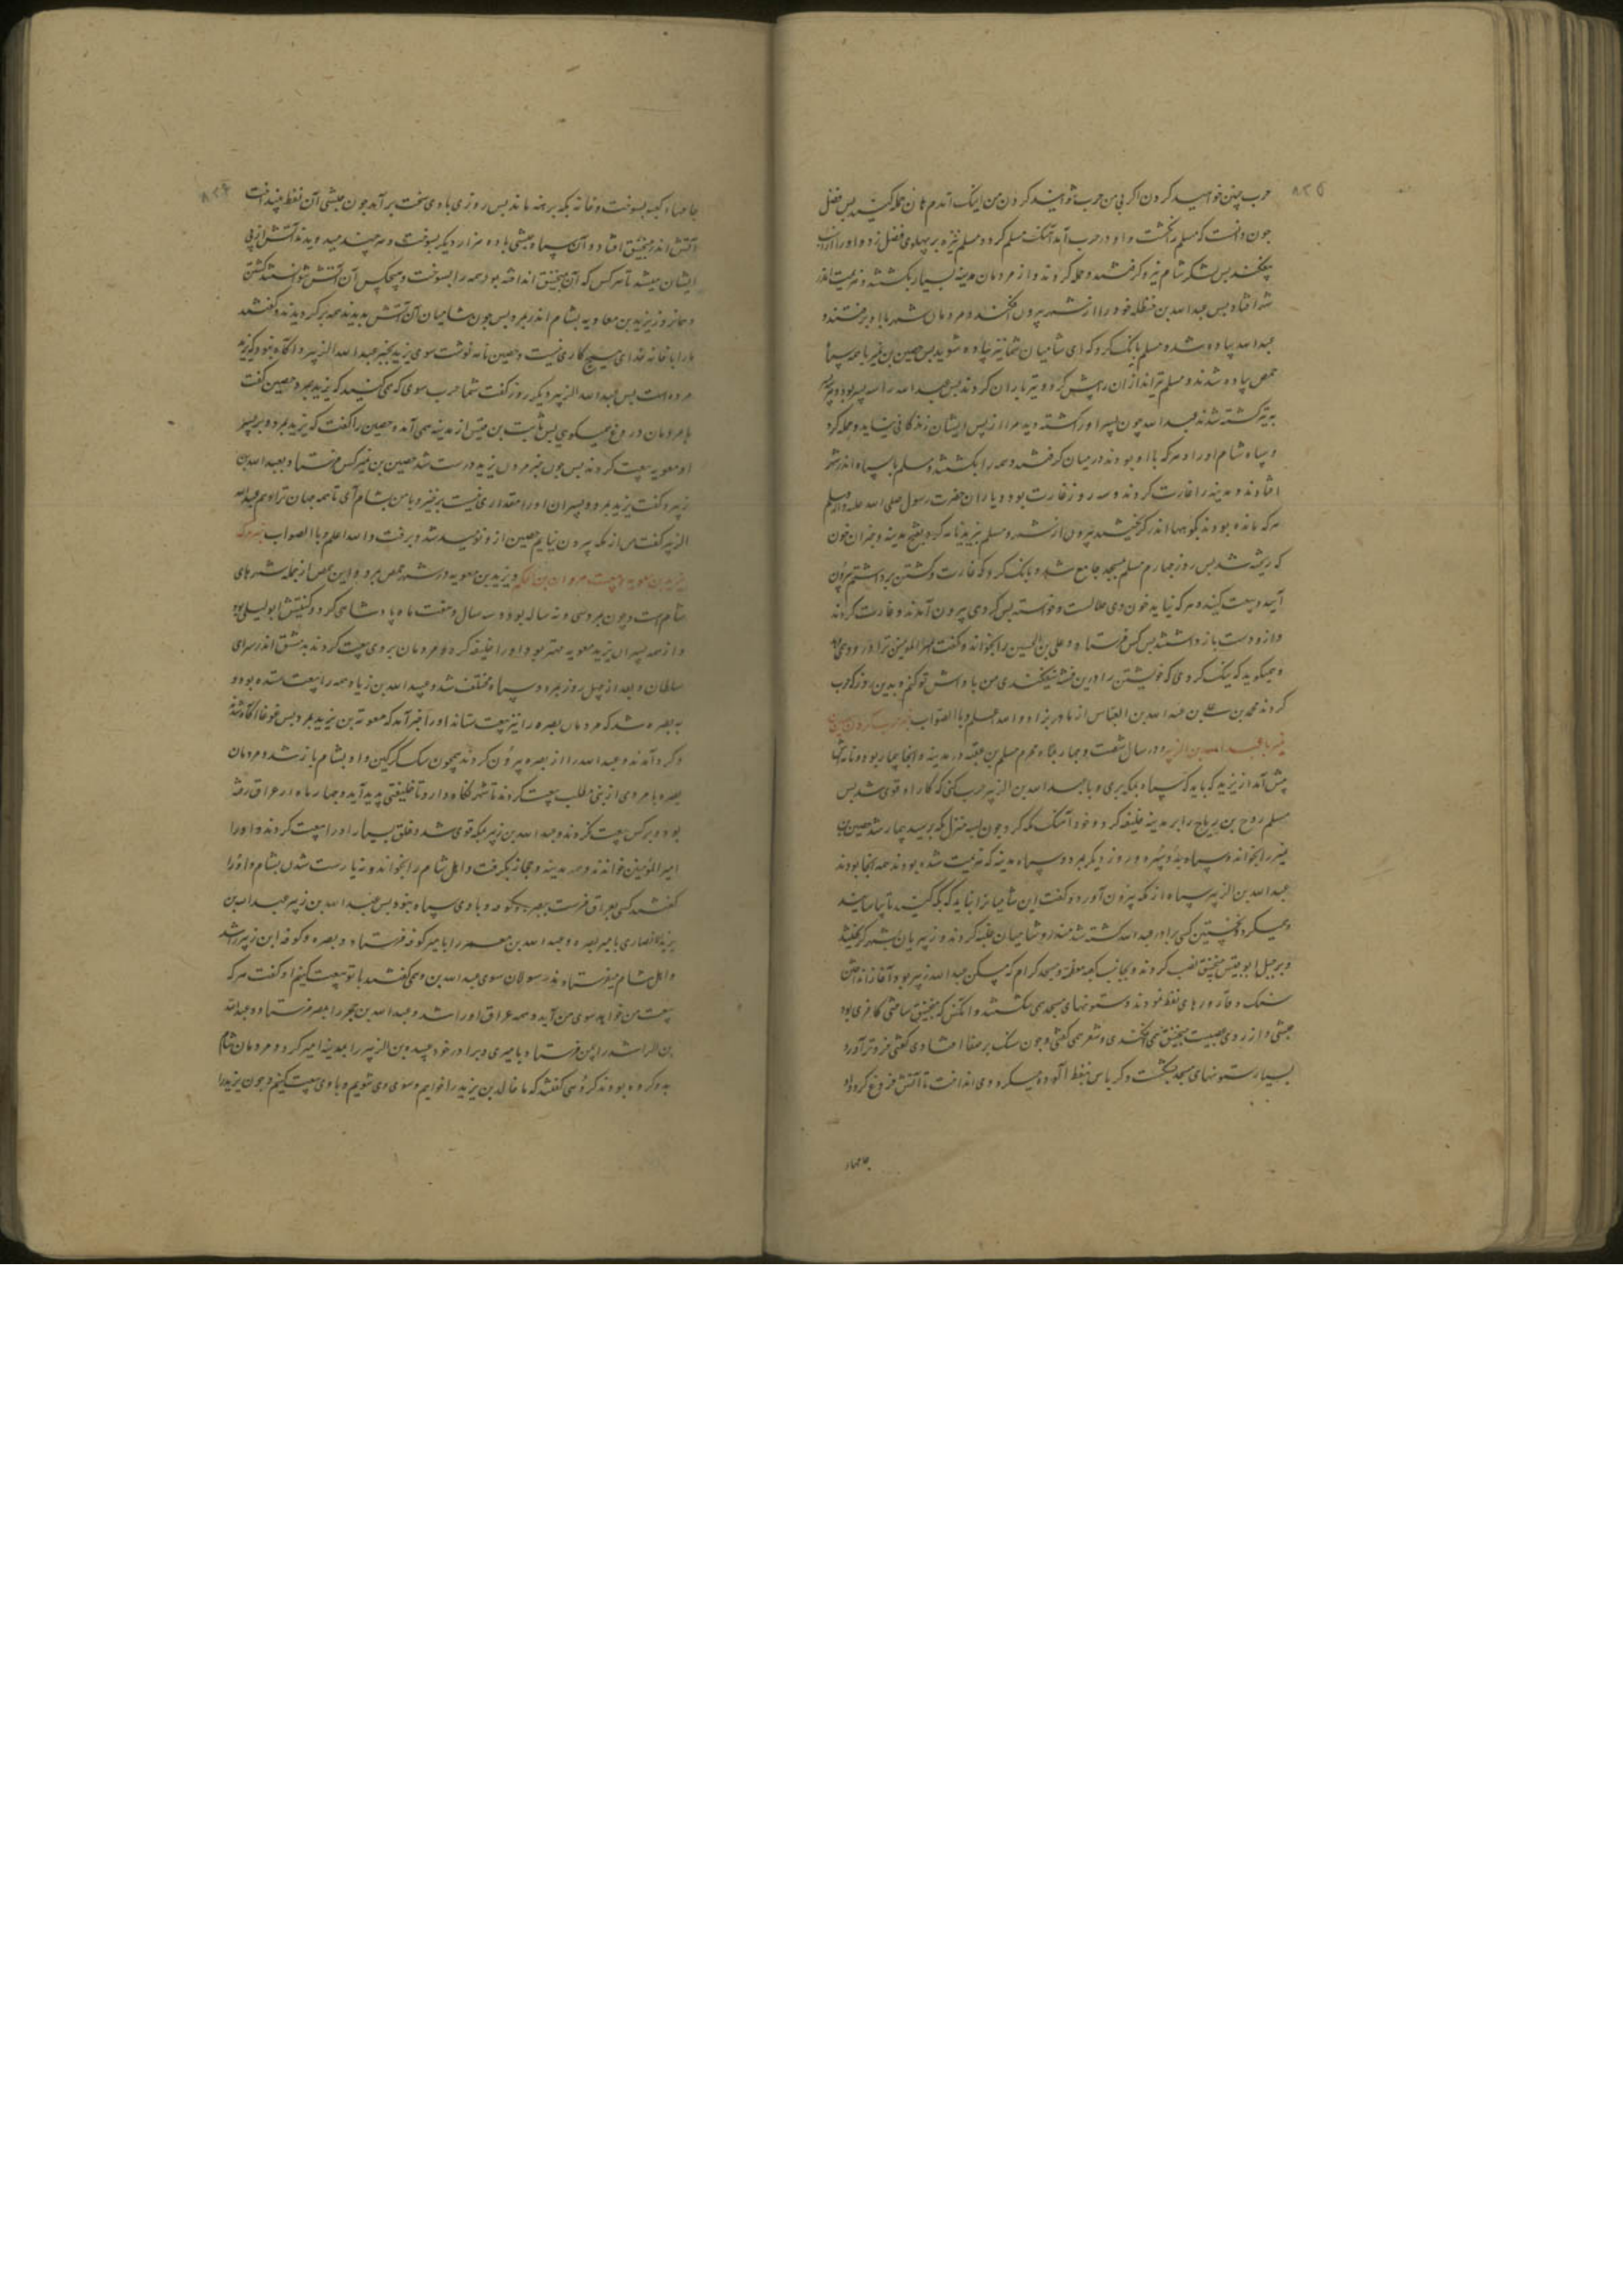 ۸۲۵
حرب چنین خواهید کردن اگر بی من حرب توانید کردن من اینک آمدم هان حمله کنید پس فضل
جون دانست که مسلم را بکشت و او در حرب آمد آهنگ مسلم کرد و مسلم نیزه بر پهلوی فضل زد و او را از اسب
بیفکند پس لشکر شام نیرو کرفتند و حمله کردند و از مردمان مدینه بسیار بکشتند و هزیمت اندر
افتاد پس عبدالله بن حنظله خود را از شهر بیرون افکند و مردمان شهر با او برفتند و
عبدالله پیاده شده مسلم بانک کرد که ای شامیان شما نیز پیاده شوید پس حصین بن نمیر با همه سپاه
حمص پیاده شدند و مسلم تیراندازان را پیش کرد و تیر باران کردند پس عبدالله را سه پسر بود و هر سه
به تیر کشته شدند عبدالله چون پسر او را کشته دید مرا از پس ایشان زندکانی نباید و حمله کرد
و سپاه شام او را و هر که با او بودند در میان کرفتند و همه را بکشتند و مسلم با سپاه اندر شهر
افتادند و مدینه را غارت کردند و سه روز غارت بود و یاران حضرت رسول صلی الله علیه و آله وسلم
هر که مانده بودند بکوهها اندر کریختند بیرون از شهر و مسلم به یزید نامه کرد بفتح مدینه و خون
که ریخته شد پس روز چهارم مسلم بمسجد جامع شد و بانک کرد که غارت و کشتن برداشتم بیرون
آیید و بیعت کنید و هر که نیاید خون وی حلالست و خواسته پس کروهی بیرون آمدند و غارت کردند
و از و دست باز داشتند پس کس فرستاد و علی بن الحسین را بخواند و گفت امیرالمؤمنین ترا درود همی
و میکوید که نیک کردی که خویشتن را درین فتنه نیفکندی من پاداش تو کنم و بدین روز که حرب
کردند محمد بن علی بن عبدالله بن العباس از مادر بزاد و الله اعلم و بالصواب خبر حرب کردن حصین بن
نمیر با عبدالله بن الزبیر و در سال شصت و چهار بماه محرم مسلم بن عقبه در مدینه و آنجا بیمار بود و نامه
پیش آمد از یزید که باید که سپاه بمکه بری و با عبدالله بن الزبیر حرب کنی که کار او قوی شد پس
مسلم روح بن رباح را بر مدینه خلیفه کرد و خود آهنک مکه کرد و چون بسه منزل مکه برسید بیمار شد حصین بن
نمیر را بخواند و سپاه بدو سپرد و روز دیگر بمرد و سپاه مدینه که هزیمت شده بودند همه آنجا بودند
عبدالله بن الزبیر سپاه از مکه بیرون آورد و گفت این شامیان را نباید که بمکه
میکرد و نخستین کسی برادر عبدالله کشته شد منذر و شامیان غلبه کردند و زبیریان بشهر کریختند
و بر جبل ابو قبیس منجنیق نصب کردند و بجانب کعبه معظمه و مسجد حرام که مسکن عبدالله زبیر بود آغاز انداختن
سنک و قارورهای نفط نمودند و ستونهای مسجد همی شکستند و آنکس که منجنیق ساختی کافری بود
حبشی و از روی عصبیت منجنیق همی افکندی و شعر همی کفتی و چون سنک بر صفا افتادی کفتی فروتر آورد
بسیار ستونهای مسجد بشکست و کرباس بنفط آلوده میکرد و می انداخت تا آتش فروغ کرد و
جامها
۸۲۶
جامهاء کعبه بسوخت و خانه مکه برهنه ماند پس روزی بادی سخت برآمد چون حبشی آن نفط بینداخت
آتش اندر منجنیق افتاد و آن سیاه حبشی با ده مزار دیگر بسوخت و هر چند میدویدند آتش از پی
ایشان میشد تا هر کس که آن منجنیق انداخته بود همه را بسوخت و هیچکس آن آتش نتوانستند کشتن
و همانروز یزید بن معاویه بشام اندر بمرد پس چون شامیان آن آتش بدیدند همه برکردیدند و کفتند
ما را با خانه خدای هیچ کاری نیست و حصین نامه نوشت سوی یزید بخبر عبدالله الزبیر و آگاه نبود که یزید
مرده است پس عبدالله الزبیر دیگر روز گفت شما حرب سوی که می کنید که یزید بمرد حصین گفت
با مردمان دروغ میگوی پس ثابت بن قیس از مدینه همی آمد و حصین را گفت که یزید بمرد و بر پسر
او معویه بیعت کردند پس چون خبر مردن یزید درست شد حصین بن نمیر کس فرستاد بعبدالله بن
زبیر و گفت یزید بمرد و پسران او را مقداری نیست برخیز و با من بشام آی تا همه جهان ترا دهم عبدالله
الزبیر گفت من از مکه بیرون نیایم حصین از و نومید شد و برفت و الله اعلم و باالصواب خبر مرک
یزید بن معویه و بیعت مروان بن الحکم و یزید بن معویه در شهر حمص بمرد و این حمص از جمله شهرهای
شام است و چون بمرد سی و نه ساله بود و سه سال و هفت ماه پادشاهی کرد و کنیتش ابولیلی بود
و از همه پسران یزید معویه مهتر بود او را خلیفه کرد و مردمان بر وی بیعت کردند بدمشق اندر سرای
سلطان و بعد از چهل روز بمرد و سپاه مختلف شد و عبدالله بن زیاد همه را بیعت ستده بود و
به بصره شد که مردمان بصره را نیز بیعت ستاند او را خبر آمد که معویه بن یزید بمرد پس غوغا آگاه شدند
و کرد آمدند و عبدالله را از بصره بیرون کردند همچون سک کرکین و او بشام باز شد و مردمان
بصره با مردی از بنی مطلب بیعت کردند تا شهر نگاه دارد تا خلیفتی پدید آید و چهار ماه در عراق فتنه
بود و بر کس بیعت نکردند و عبدالله بن زبیر بمکه قوی شد و خلق بسیار او را بیعت کردند و او را
امیرالمؤمنین خواندند و همه مدینه و حجاز بگرفت و اهل شام را بخواند و زیارت شدن بشام و او را
گفتند کسی بعراق فرست بصره و کوفه و با وی سپاه نبود پس عبدالله بن زبیر عبدالله بن
یزید انصاری بامیر بصره و عبدالله بن معمر را بامیر کوفه فرستاد و بصره و کوفه ابن زبیر را شد
و اهل شام میفرستادند رسولان سوی عبدالله بن و همی کفتند با تو بیعت کنیم او گفت هر که
بیعت من خواهد سوی من آید و همه عراق او را شد و عبدالله بن جحر را بمصر فرستاد و عبدالله
بن الراشد را بیمن فرستاد بامیری و برادر خود عبیده بن الزبیر را بمدینه امیر کرد و مردمان شام
بدو کرده بودند کروهی کفتند که ما خالد بن یزید را خواهیم و سوی وی شویم و با وی بیعت کنیم و چون یزید را